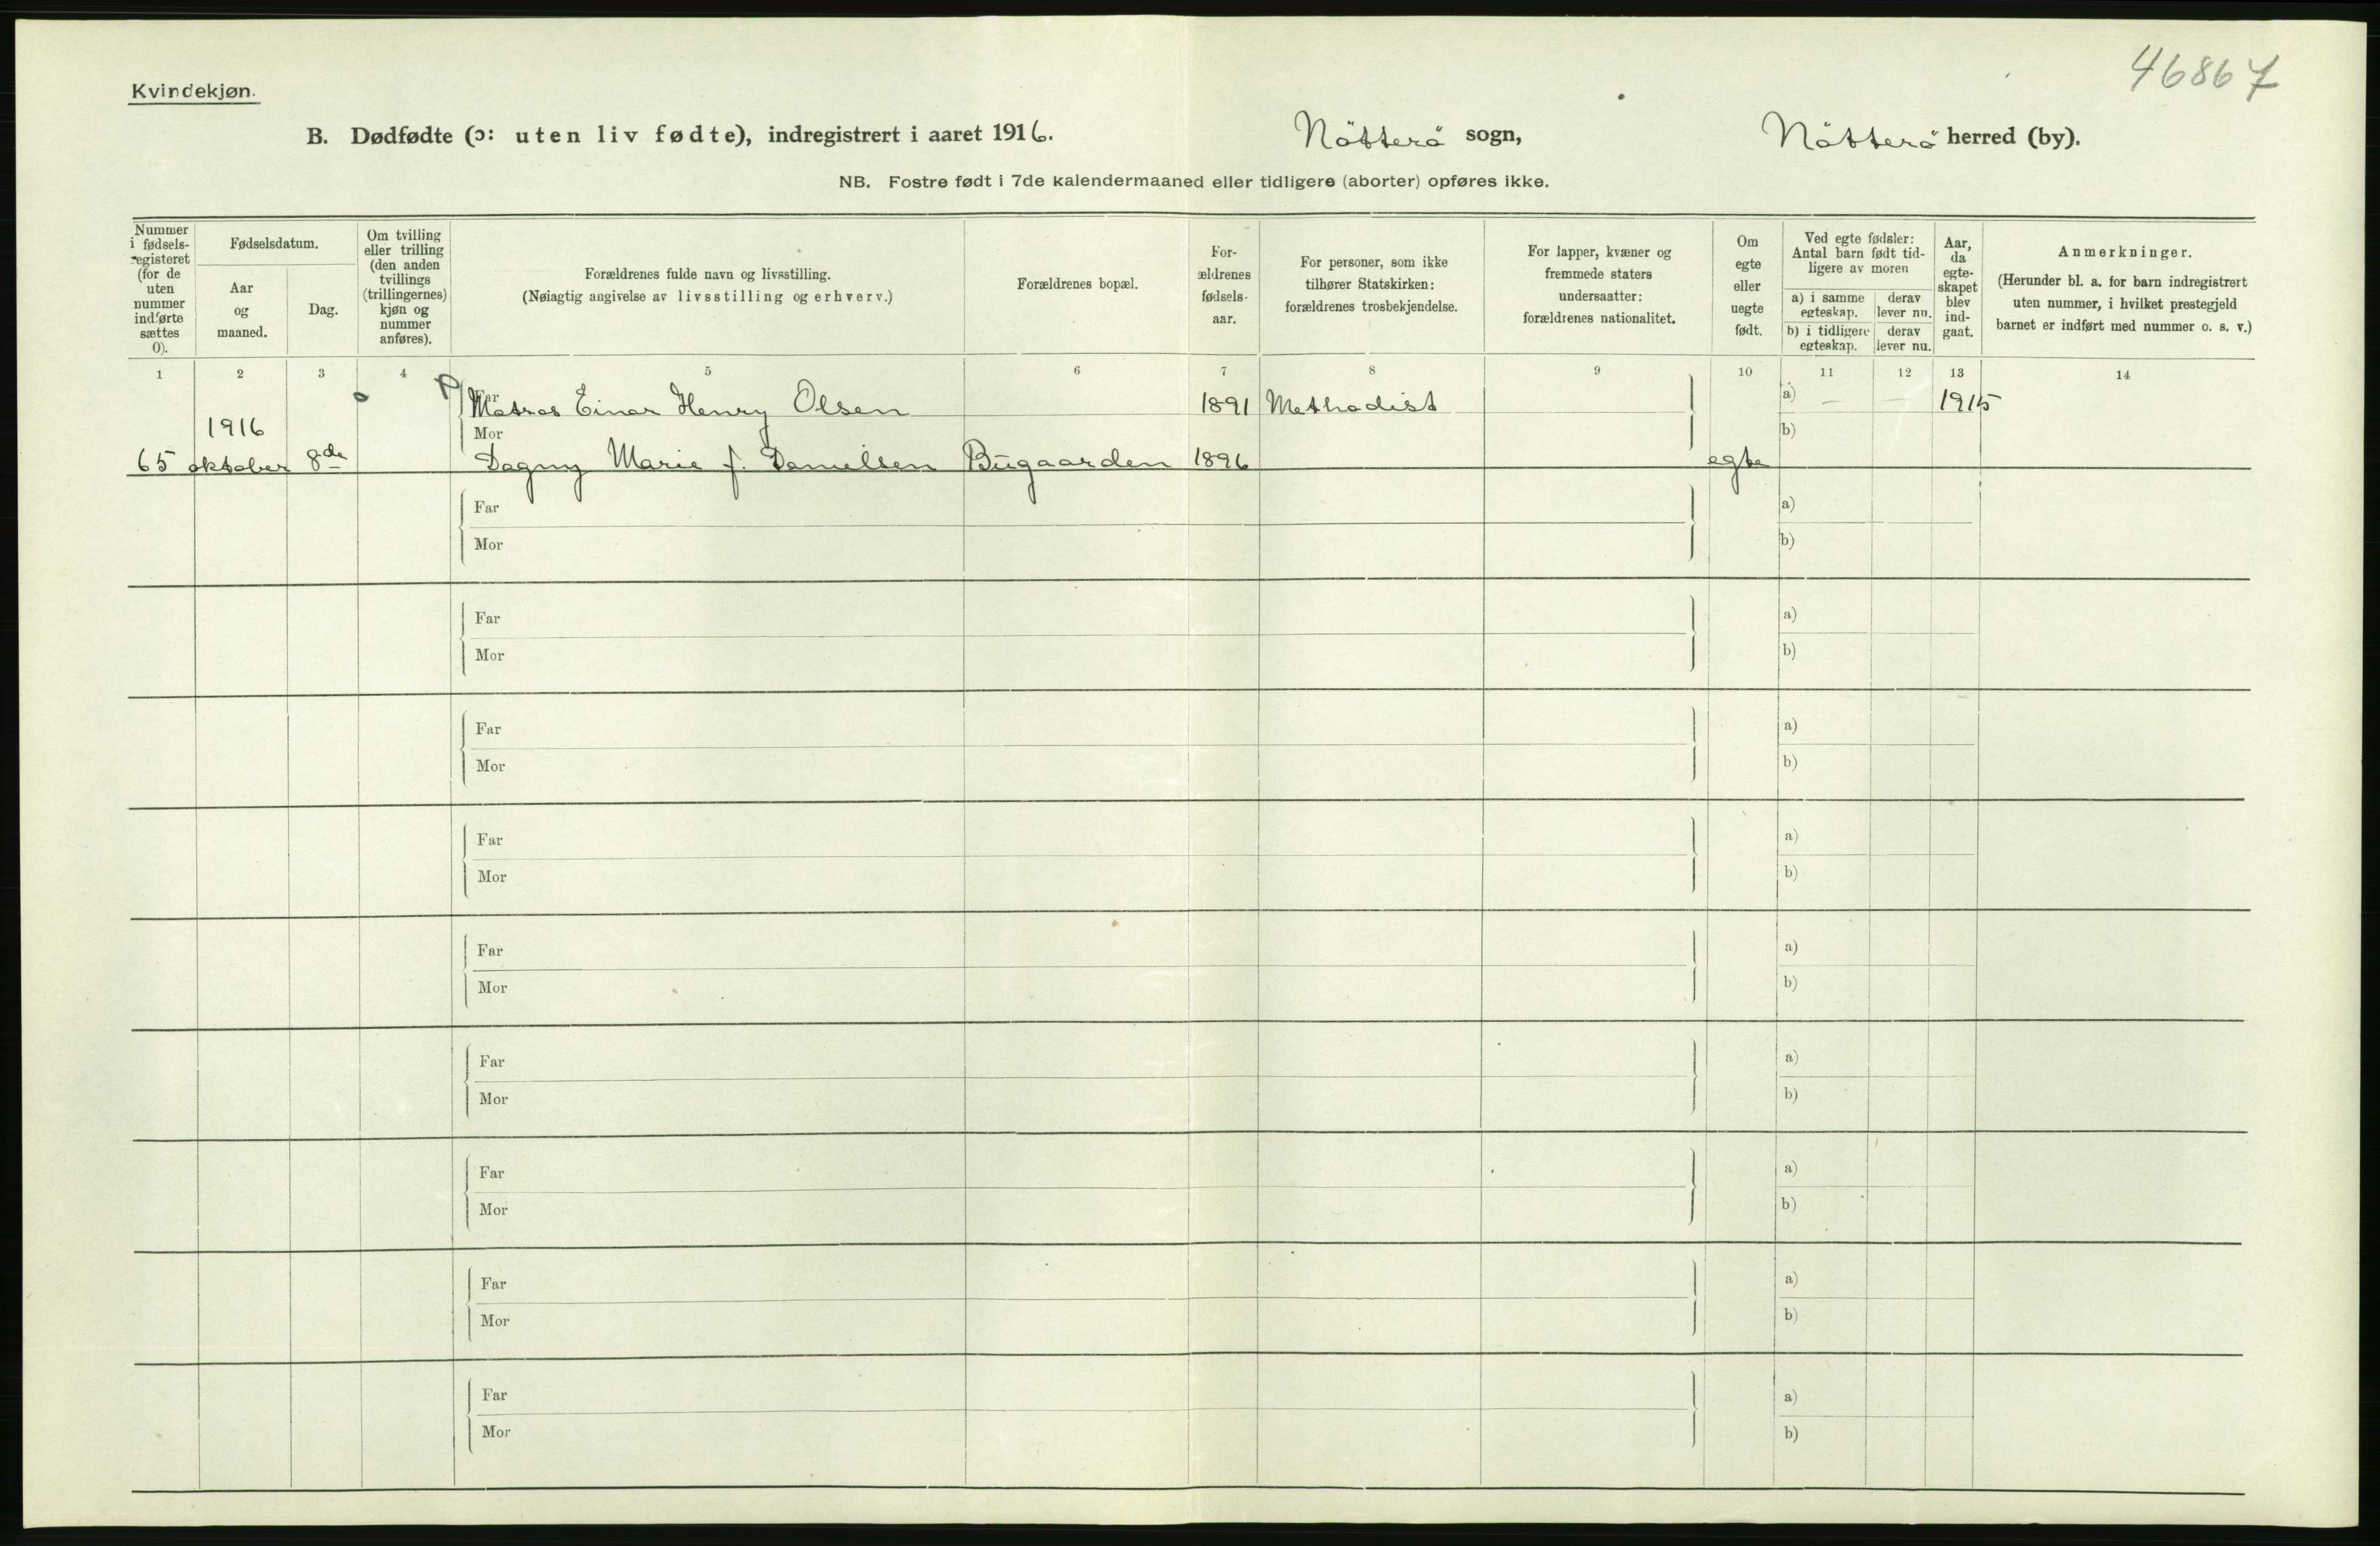 46867
Kvindekjøn.
B. Dødfødte (ɔ: uten liv fødte), indregistrert i aaret 1916. Nötterö sogn, Nötterö herred (by).
NB. Fostre født i 7de kalendermaaned eller tidligere (aborter) opføres ikke.
Nummer
i fødsels-
registeret
(for de
uten
nummer
indførte
sættes
0).
Fødselsdatum.
Aar
og
maaned.
Dag.
Om tvilling
eller trilling
(den anden
tvillings
(trillingernes)
kjøn og
nummer
anføres).
Forældrenes fulde navn og livsstilling.
(Nøiagtig angivelse av livsstilling og erhverv.)
Forældrenes bopæl.
For-
ældrenes
fødsels-
aar.
For personer, som ikke
tilhører Statskirken:
forældrenes trosbekjendelse.
For lapper, kvæner og
fremmede staters
undersaatter:
forældrenes nationalitet.
Om
egte
eller
uegte
født.
Ved egte fødsler:
Antal barn født tid-
ligere av moren
a) i samme
egteskap.
derav
lever nu.
b) i tidligere
egteskap.
derav
lever nu.
Aar,
da
egte-
skapet
blev
ind-
gaat.
Anmerkninger.
(Herunder bl. a. for barn indregistrert
uten nummer, i hvilket prestegjeld
barnet er indført med nummer o. s. v.)
1 2 3 4 5 6 7 8 9 10 11 12 13 14
Far Matros Einar Henry Olsen 1891 Methodist a) — — 1915
1916 Mor b)
65 oktober 8de Dagny Marie f. Danielsen Bugaarden 1896 egte
Far a)
Mor b)
Far a)
Mor b)
Far a)
Mor b)
Far a)
Mor b)
Far a)
Mor b)
Far a)
Mor b)
Far a)
Mor b)
Far a)
Mor b)
Far a)
Mor b)